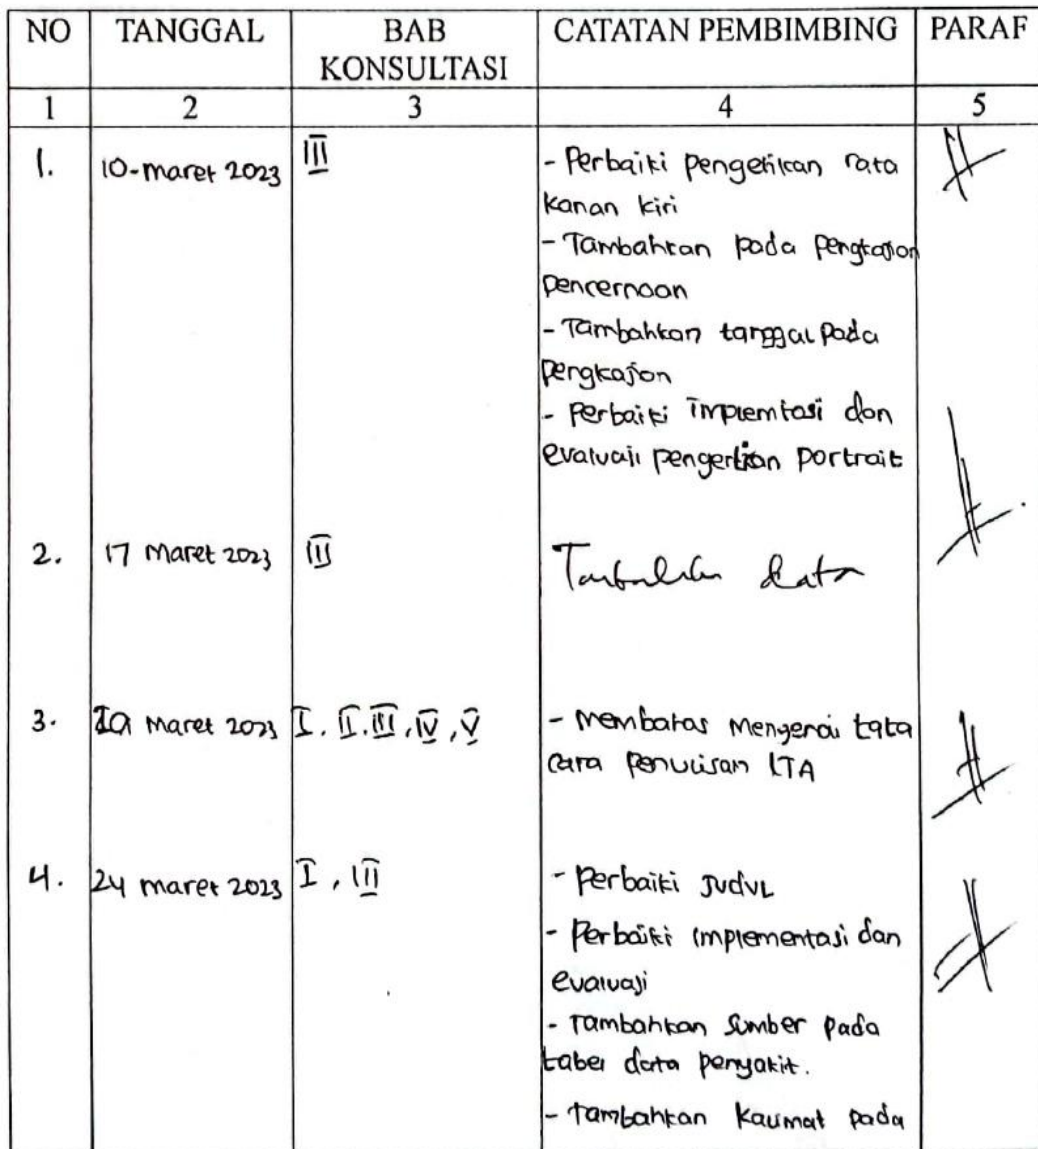 NO TANGGAL BAB KONSULTASI CATATAN PEMBIMBING PARAF
1 2 3 4 5
1. 10-maret 2023 III - Perbaiki pengetikan rata
kanan kiri
- Tambahkan pada Pengkajian
Pencernaan
- Tambahkan tanggal pada
Pengkajian
- Perbaiki implemtasi dan
evaluasi pengertian portrait
2. 17 Maret 2023 III Tambahkan data
3. Maret 2023 I. II. III, IV, V - Membahas Mengenai tata
cara Penulisan LTA
4. 24 maret 2023 I, III - Perbaiki Judul
- Perbaiki implementasi dan
evaluasi
- Tambahkan Sumber pada
tabel data penyakit.
- tambahkan Kalimat pada